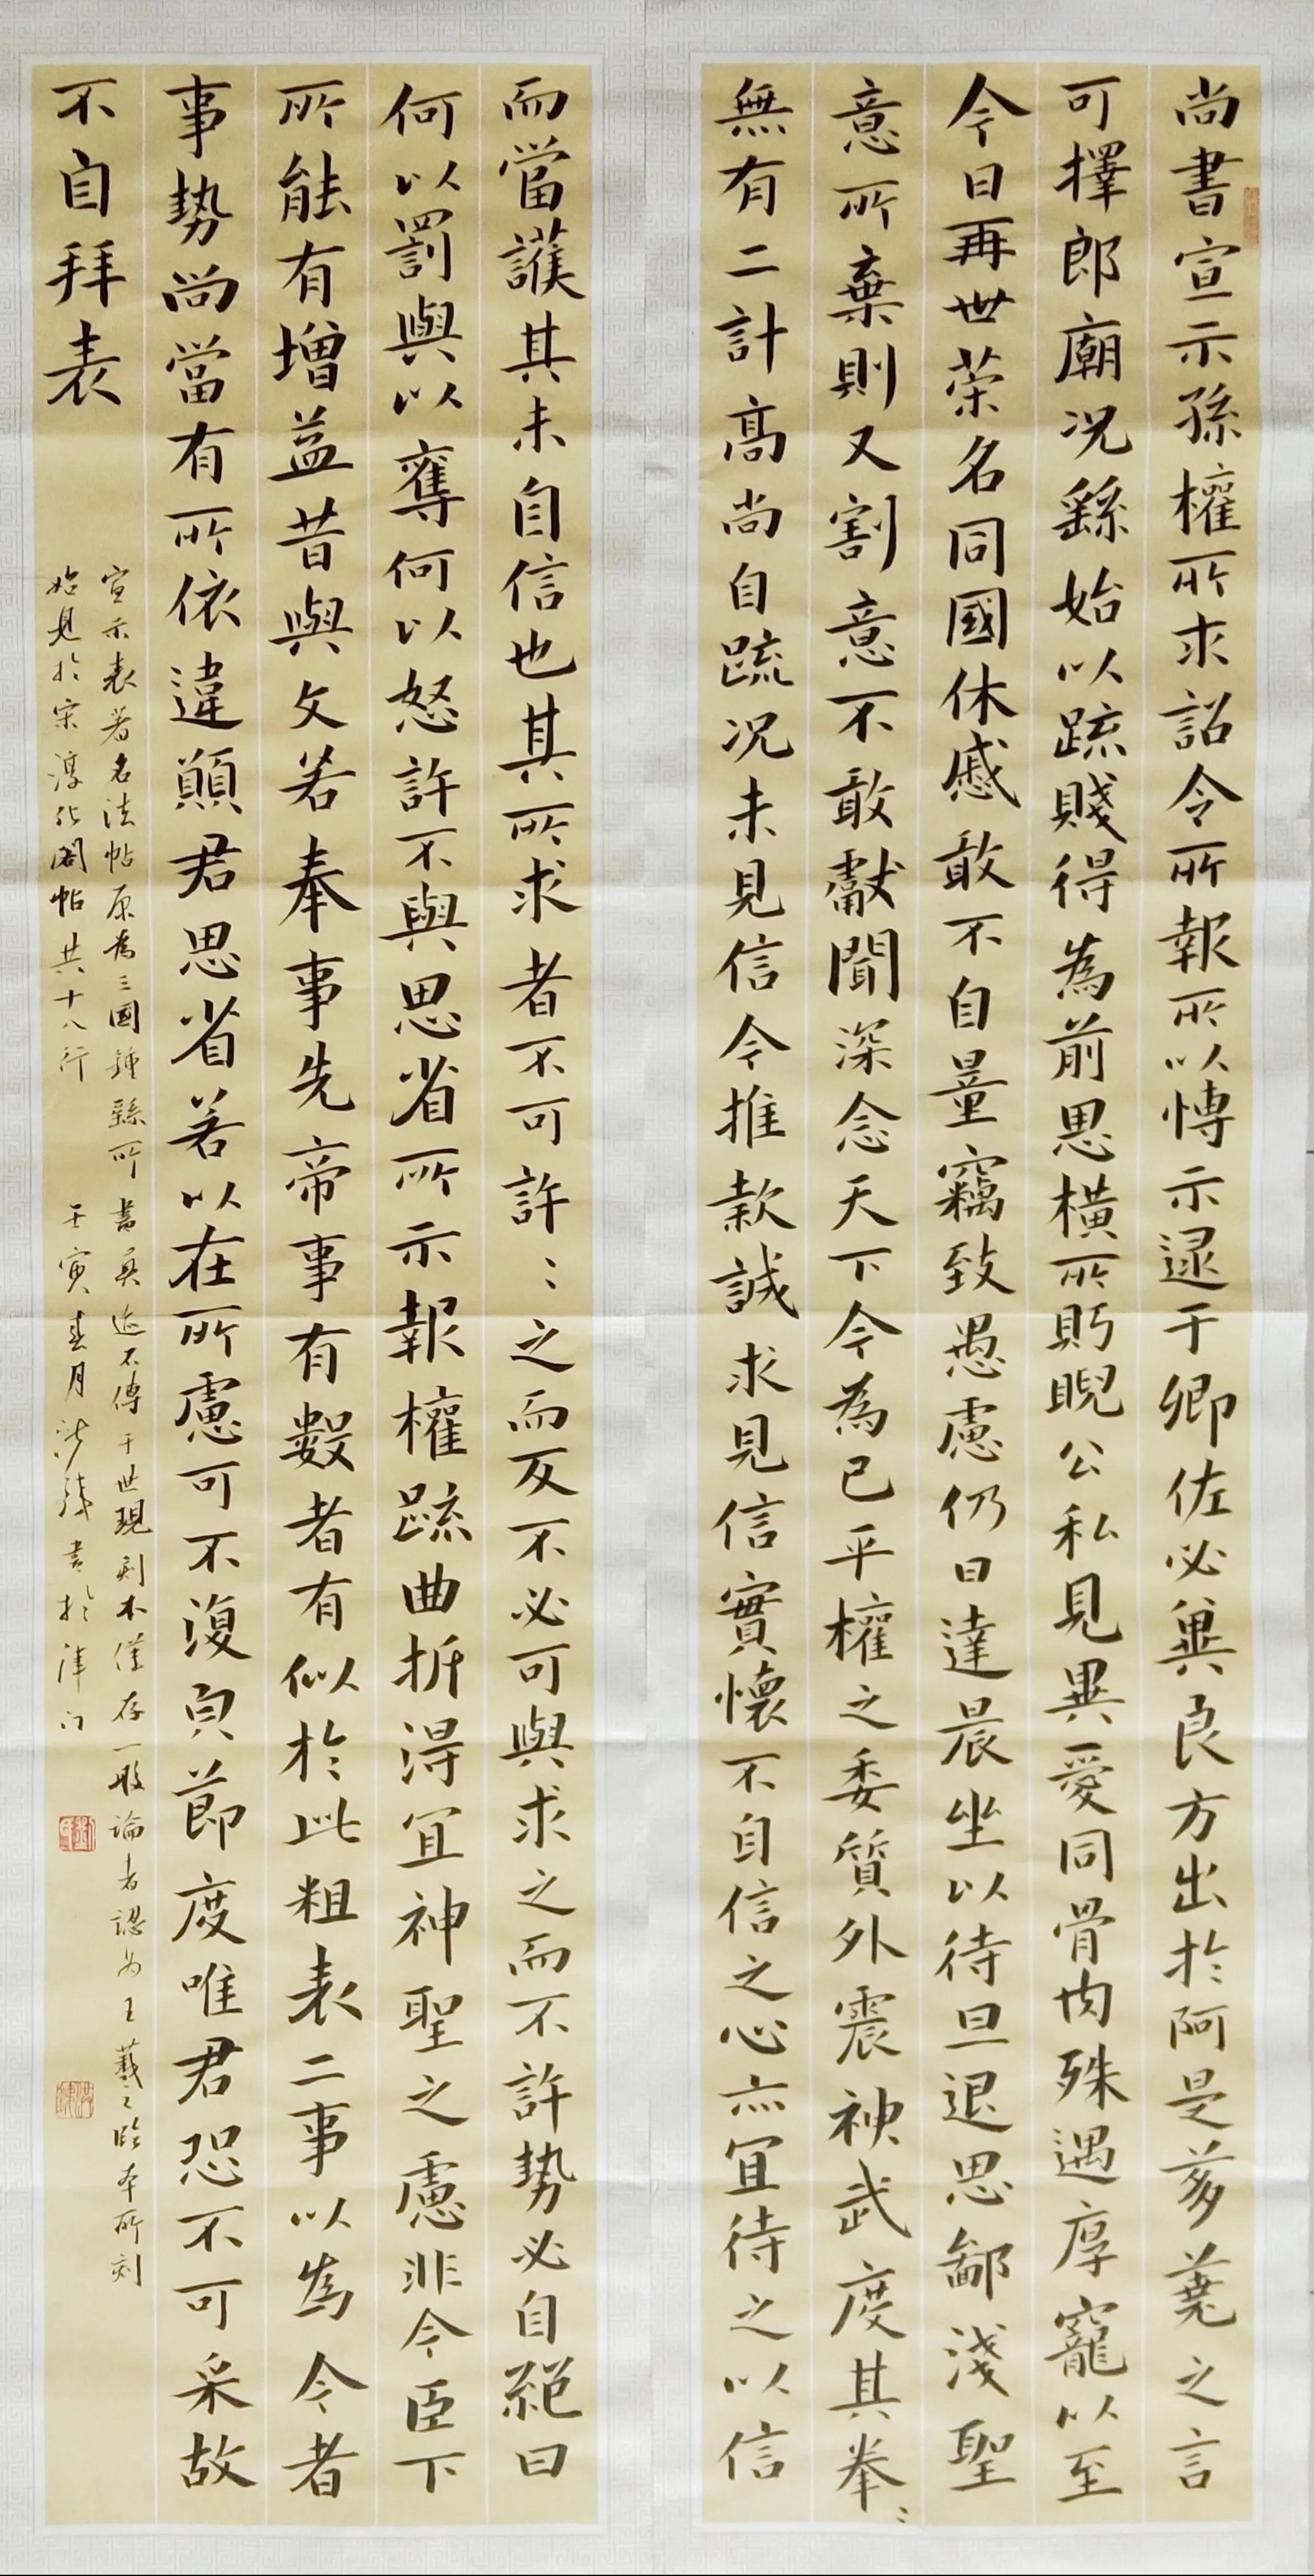 尚書宣示孫權所求詔令所報所以博示逮于卿佐必兾良方出於阿是芻蕘之言
可擇郎廟况繇始以疏賤得為前思橫所眄睨公私見異愛同骨肉殊遇厚寵以至
今日再世荣名同國休慼敢不自量竊致愚慮仍日達晨坐以待旦退思鄙淺聖
意所棄則又割意不敢獻聞深念天下今為已平權之委質外震神武度其拳〻
無有二計高尚自疏况未見信今推款誠求見信實懷不自信之心亦宜待之以信
而當護其未自信也其所求者不可許〻之而反不必可與求之而不許勢必自絕曰
何以罰與以奪何以怒許不與思省所示報權疏曲折得宜神聖之慮非今臣下
所能有增益昔與文若奉事先帝事有數者有似於此粗表二事以為今者
事勢尚當有所依違願君思省若以在所慮可不復皃節度唯君恐不可采故
不自拜表
宣示表著名法帖原為三國鍾繇所書真迹不傳于世現刻本僅存一般論者認为王羲之臨本所刻
始見於宋淳化閣帖共十八行 壬寅春月 書於津门